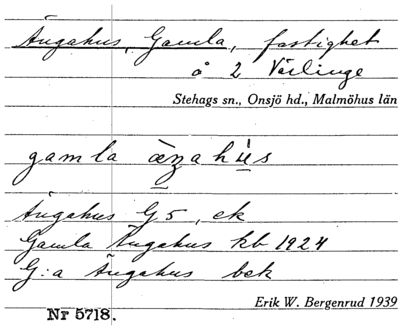 Ängahus, Gamla, fastighet
å 2 Värlinge
Stehags sn., Onsjö hd., Malmöhus län
gamla
Ängahus G5, ek
Gamla Ängahus kb 1924
G:a Ängahus bek
Erik W. Bergenrud 1939
Nr 5718.